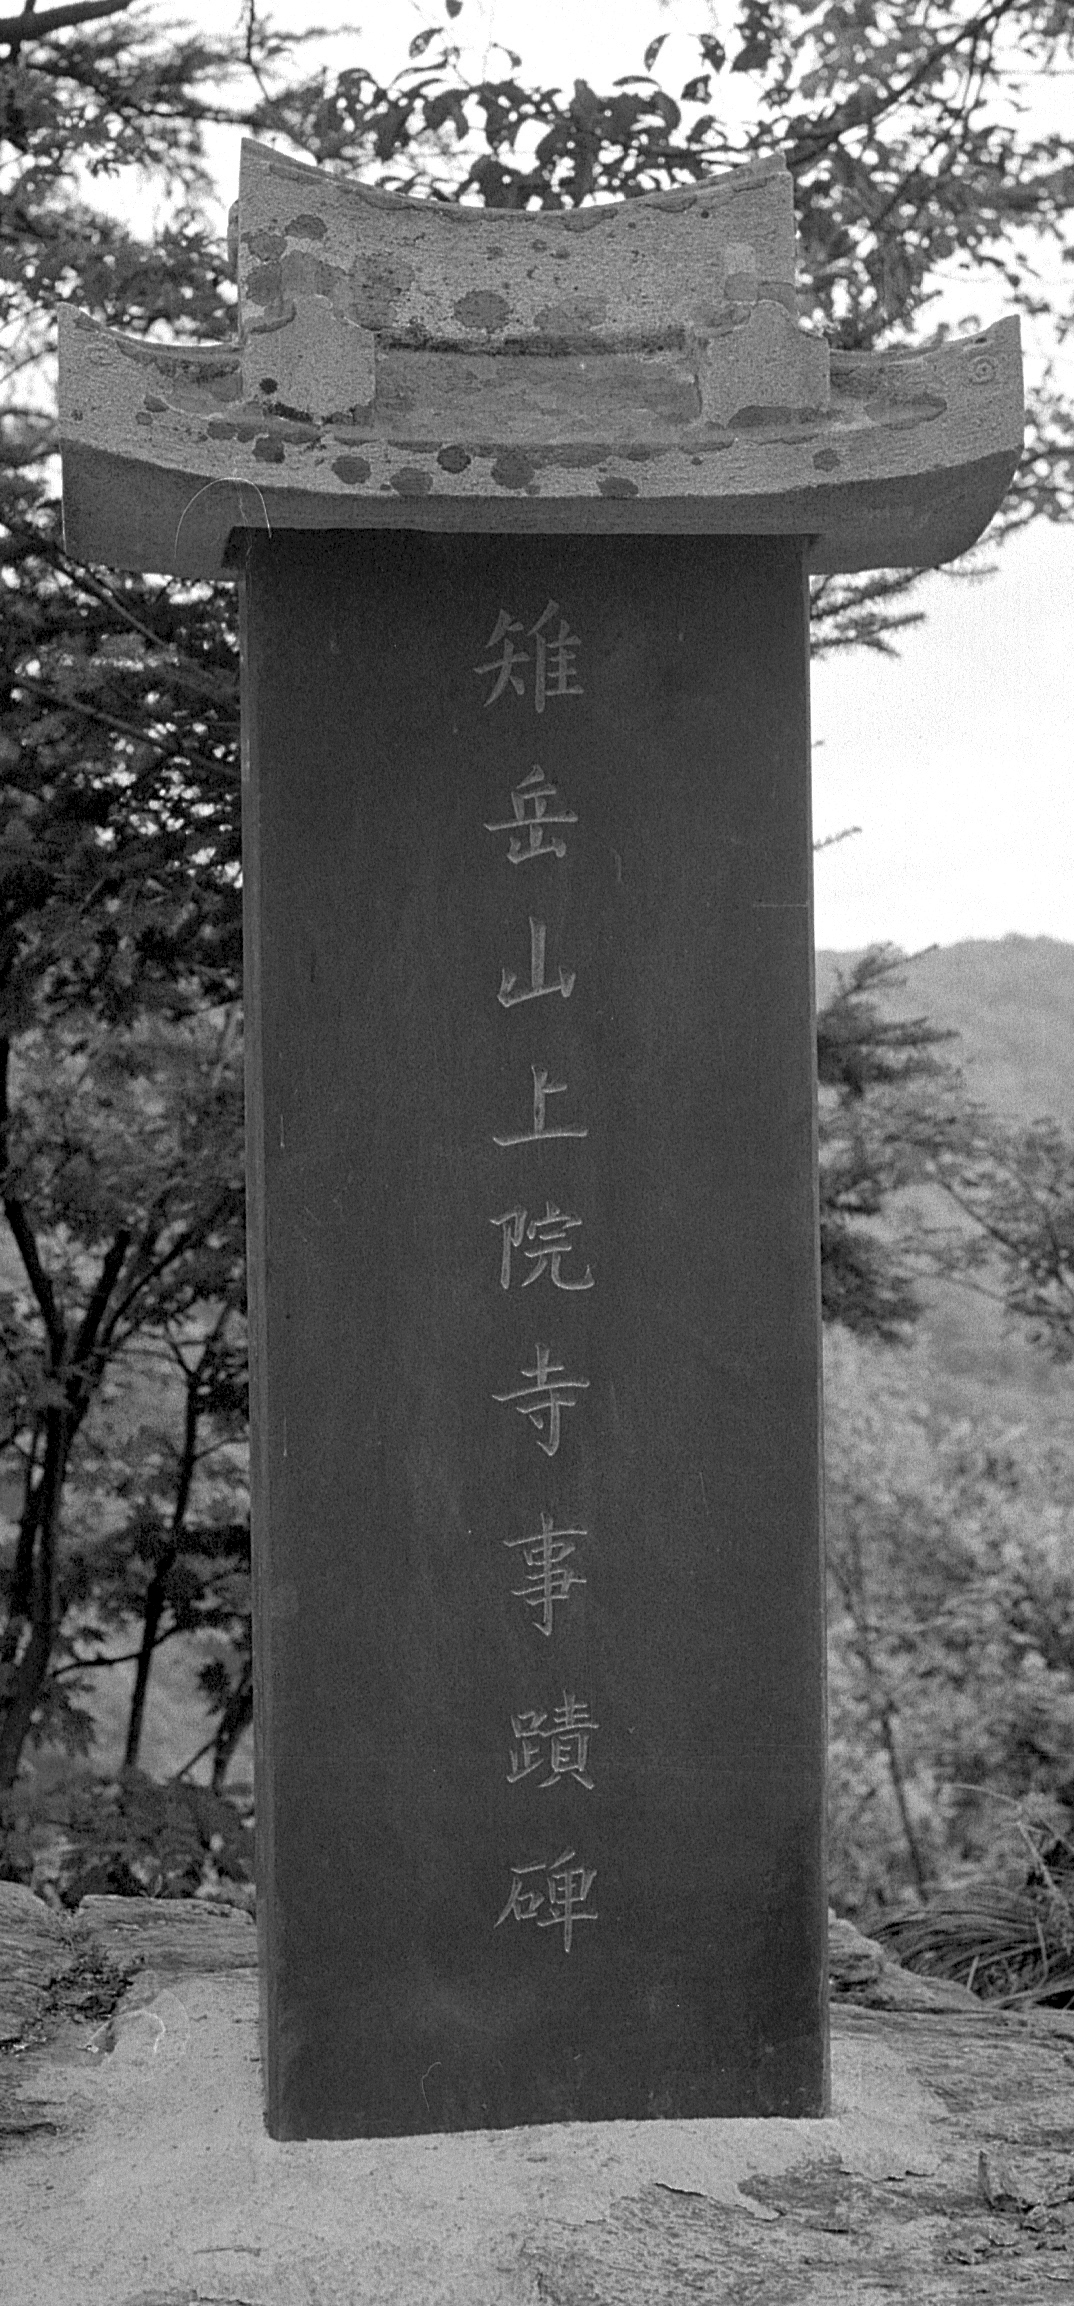 雉岳山上院寺事蹟碑